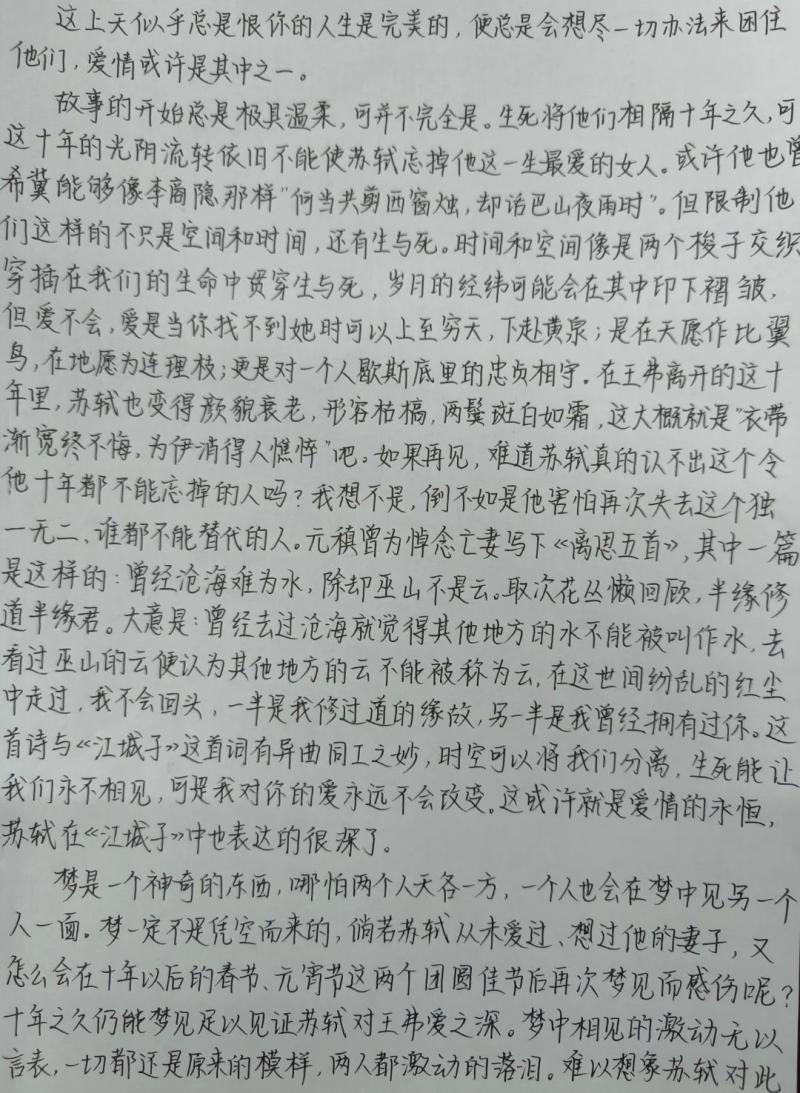 这上天似乎总是恨你的人生是完美的，便总是会想尽一切办法来困住
他们，爱情或许是其中之一。
故事的开始总是极具温柔，可并不完全是。生死将他们相隔十年之久，可
这十年的光阴流转依旧不能使苏轼忘掉他这一生最爱的女人。或许他也曾
希冀能够像李商隐那样“何当共剪西窗烛，却话巴山夜雨时”。但限制他
们这样的不只是空间和时间，还有生与死。时间和空间像是两个梭子交织
穿插在我们的生命中贯穿生与死，岁月的经纬可能会在其中印下褶皱，
但爱不会，爱是当你找不到她时可以上至穷天，下赴黄泉；是在天愿作比翼
鸟，在地愿为连理枝；更是对一个人歇斯底里的忠贞相守。在王弗离开的这十
年里，苏轼也变得颜貌衰老，形容枯槁，两鬓斑白如霜，这大概就是“衣带
渐宽终不悔，为伊消得人憔悴”吧。如果再见，难道苏轼真的认不出这个令
他十年都不能忘掉的人吗？我想不是，倒不如是他害怕再次失去这个独
一无二、谁都不能替代的人。元稹曾为悼念亡妻写下《离思五首》，其中一篇
是这样的：曾经沧海难为水，除却巫山不是云。取次花丛懒回顾，半缘修
道半缘君。大意是：曾经去过沧海就觉得其他地方的水不能被叫作水，去
看过巫山的云便认为其他地方的云不能被称为云，在这世间纷乱的红尘
中走过，我不会回头，一半是我修过道的缘故，另一半是我曾经拥有过你。这
首诗与《江城子》这首词有异曲同工之妙，时空可以将我们分离，生死能让
我们永不相见，可是我对你的爱永远不会改变。这或许就是爱情的永恒，
苏轼在《江城子》中也表达的很深了。
梦是一个神奇的东西，哪怕两个人天各一方，一个人也会在梦中见另一个
人一面。梦一定不是凭空而来的，倘若苏轼从未爱过、想过他的妻子，又
怎么会在十年以后的春节、元宵节这两个团圆佳节后再次梦见而感伤呢？
十年之久仍能梦见足以见证苏轼对王弗爱之深。梦中相见的激动无以
言表，一切都还是原来的模样，两人都激动的落泪。难以想象苏轼对此